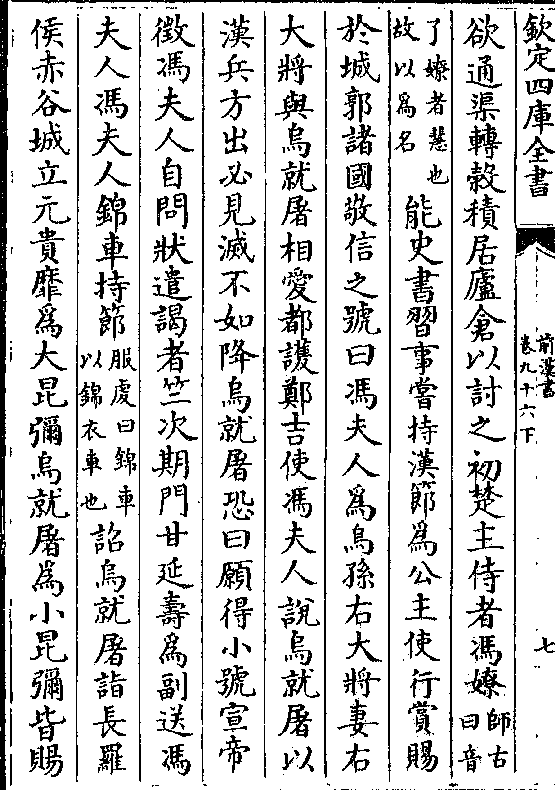 欽定四庫全書
前漢書
卷九十六下
七
欲通渠轉穀積居廬倉以討之初楚主侍者馮嫽師古曰音
了嫽者慧也故以為名能史書習事嘗持漢節為公主使行賞賜
於城郭諸國敬信之號曰馮夫人為烏孫右大將妻右
大將與烏就屠相愛都護鄭吉使馮夫人說烏就屠以
漢兵方出必見滅不如降烏就屠恐曰願得小號宣帝
徵馮夫人自問狀遣謁者竺次期門甘延壽為副送馮
夫人馮夫人錦車持節服虔曰錦車以錦衣車也詔烏就屠詣長羅
侯赤谷城立元貴靡為大昆彌烏就屠為小昆彌皆賜